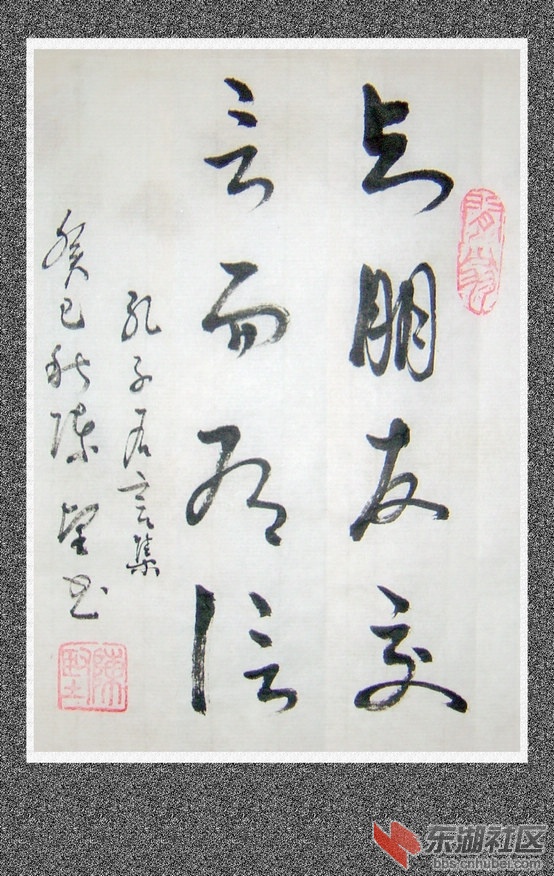 与朋友交
言而有信
孔子名言集
癸巳秋陈
书
东湖社区
bbs.cnhubei.com